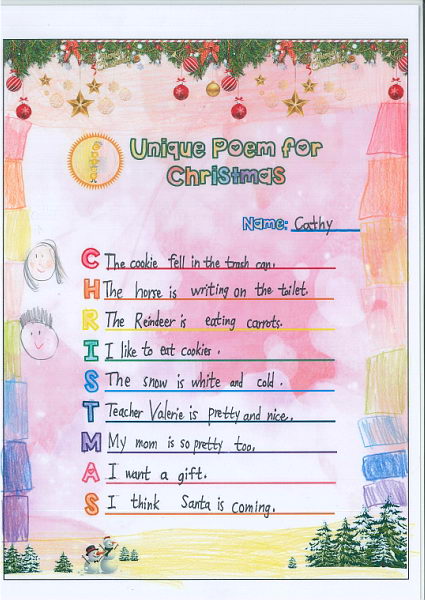 Unique Poem for
Christmas
Name: Cathy
C The cookie fell in the trash can.
H The horse is writing on the toilet.
R The Reindeer is eating carrots.
I I like to eat cookies.
S The snow is white and cold.
T Teacher Valerie is pretty and nice.
M My mom is so pretty too.
A I want a gift.
S I think Santa is coming.